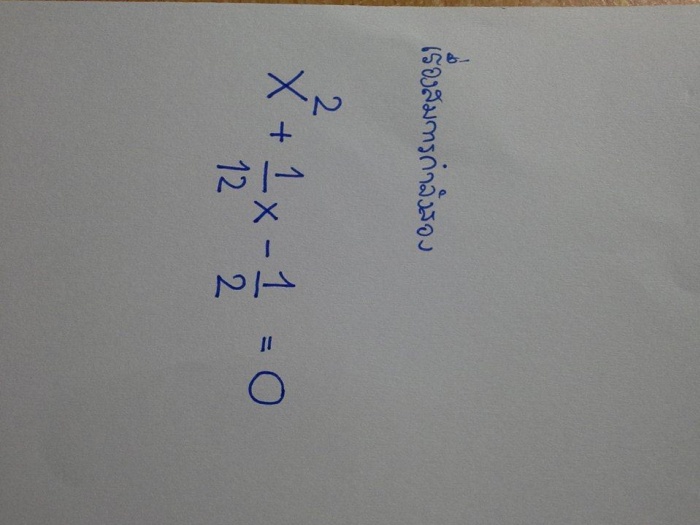 เรื่องสมการกำลังสอง
x² + 1/12 x - 1/2 = 0